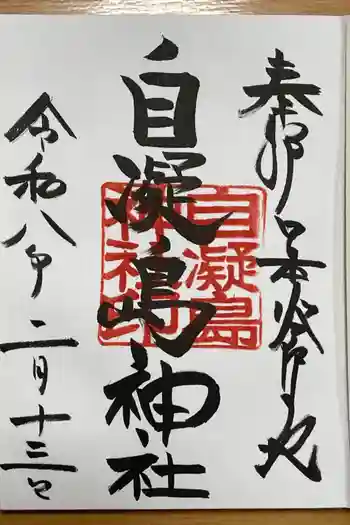 奉拝 日本発祥之地
自凝嶋神社
自凝島神社印
令和八年 二月十三日